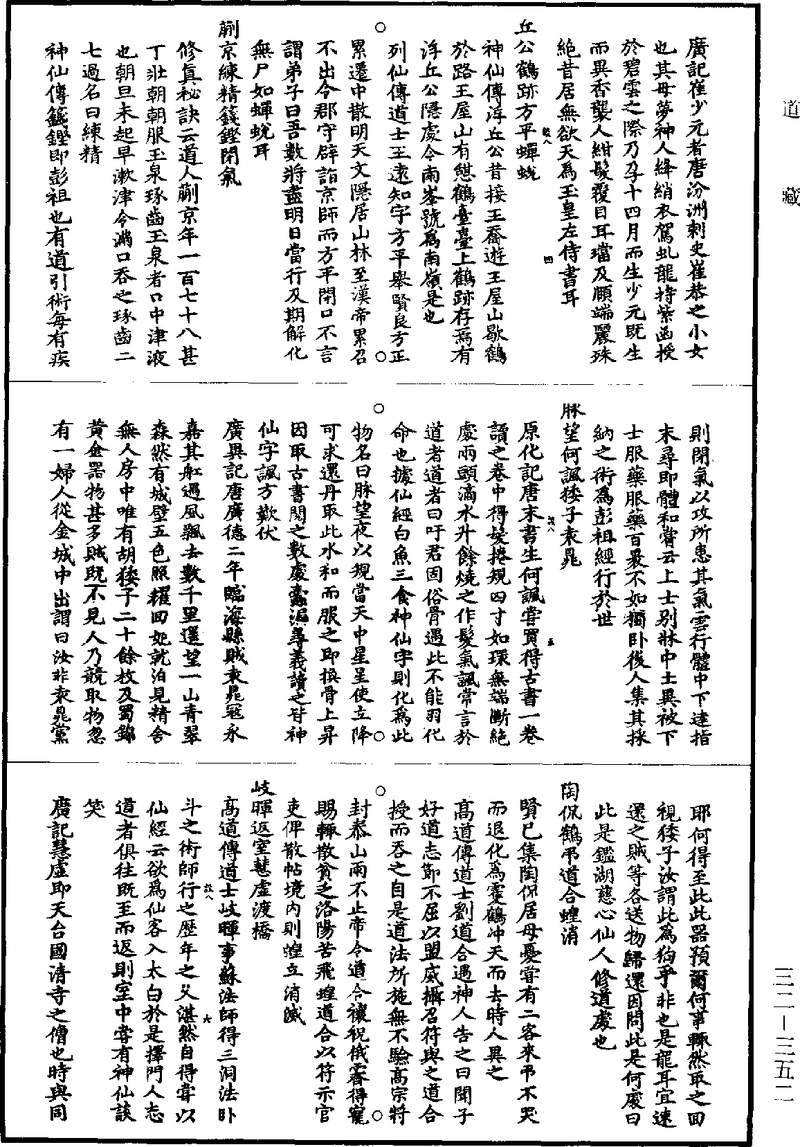 道藏
廣記崔少元者唐汾洲刺史崔恭之小女
也其母夢神人絳綃衣駕虬龍持紫函授
於碧雲之際乃孕十四月而生少元既生
而異香襲人紺髮覆目耳璫及頤端麗殊
絶昔居無欲天為玉皇左侍書耳
丘公鶴跡方平蟬蛻
神仙傳浮丘公昔接王喬遊王屋山歇鶴
於路王屋山有憇鶴臺臺上鶴跡存焉有
浮丘公隱處今南峯號為南嶺是也
列仙傳道士王遠知字方平舉賢良方正
累遷中散明天文隱居山林至漢帝累召
不出令郡守辟詣京師而方平閉口不言
謂弟子曰吾數將盡明日當行及期解化
無尸如蟬蛻耳
蒯京練精籛鏗閉氣
修真秘訣云道人蒯京年一百七十八甚
丁壯朝朝服玉泉琢齒玉泉者口中津液
也朝旦未起早漱津令滿口吞之琢齒二
七過名曰練精
神仙傳籛鏗即彭祖也有道引術每有疾
則閉氣以攻所患其氣雲行體中下達指
末尋即體和嘗云上士别牀中土異被下
士服藥服藥百裹不如獨卧後人集其採
納之術為彭祖經行於世
脉望何諷猣子袁晁
原化記唐末書生何諷嘗買得古書一卷
讀之卷中得髮捲規四寸如環無端斷絶
處兩頭滴水升餘燒之作髮氣諷常言於
道者道者曰吁君固俗骨遇此不能羽化
命也據仙經白魚三食神仙字則化為此
物名曰脉望夜以規當天中星星使立降
可求還丹取此水和而服之即換骨上昇
因取古書閱之數處蠹漏尋義讀之皆神
仙字諷方歎伏
廣異記唐廣德二年臨海縣賊袁晁寇永
嘉其舡遇風飄去數千里遥望一山青翠
森然有城壁五色照耀回舵就泊見精舍
無人房中唯有胡猣子二十餘枚及蜀錦
黃金器物甚多賊既不見人乃競取物忽
有一婦人從金城中出謂曰汝非袁晁黨
耶何得至此此器預爾何事輒然取之回
視猣子汝謂此為狗乎非也是龍耳宜速
還之賊等各送物歸還因問此是何處曰
此是鑑湖慈心仙人修道處也
陶侃鶴弔道合蝗消
賢已集陶侃居母憂嘗有二客來弔不哭
而退化為雙鶴冲天而去時人異之
高道傳道士劉道合遇神人告之曰聞子
好道志節不屈以盟威攝召符與之道合
授而吞之自是道法所施無不驗高宗將
封泰山雨不止帝令道合禳祝俄霽得寵
賜輒散貧乏洛陽苦飛蝗道合以符示官
吏俾散帖境内則蝗立消滅
岐暉返室慧虚渡橋
高道傳道士岐暉事蘇法師得三洞法卧
斗之術師行之歷年之父湛然自得嘗以
仙經云欲為仙客入太白於是擇門人志
道者俱往既至而返則室中嘗有神仙談
笑
廣記慧虚即天台國清寺之僧也時與同
三二—三五二